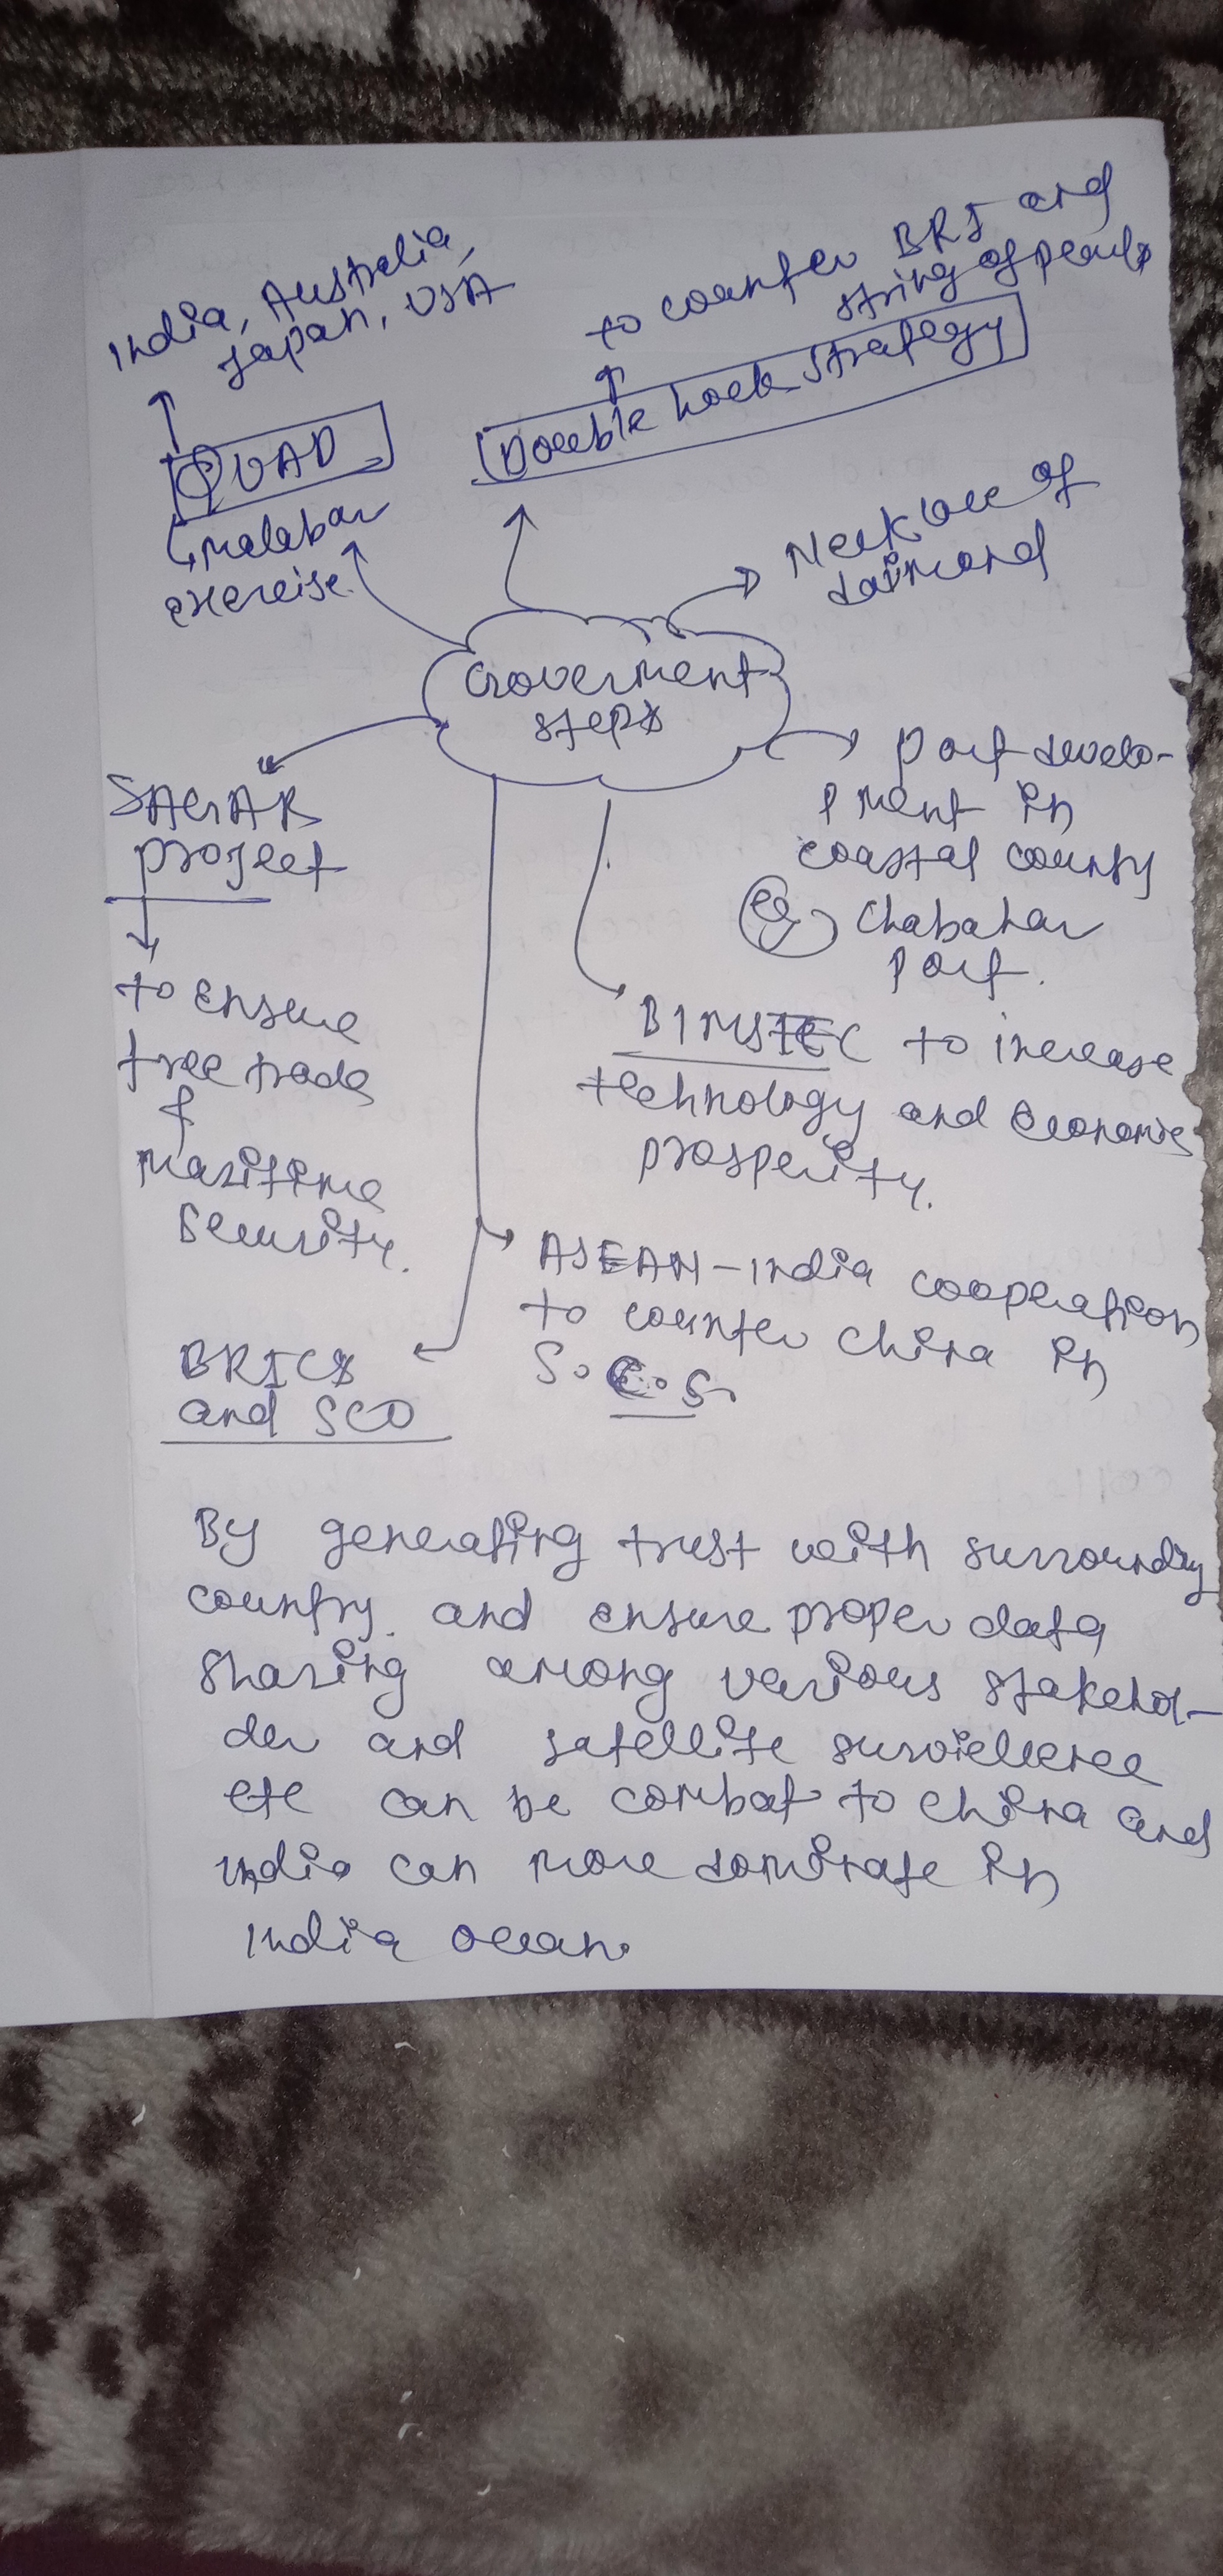 India, Australia,
Japan, USA
QUAD
Malabar
exercise.
to counter BRI and
string of pearls
Double hook strategy
Necklace of
daimond
Goverment
steps
SAGAR
project
to ensure
free trade
&
maritime
security.
port develo-
pment in
coastal county
eg Chabahar
port.
BIMSTEC to increase
technology and economic
prosperity.
ASEAN-India cooperation
to counter China in
S.C.S.
BRICS
and SCO
By generating trust with surrounding
country. and ensure proper data
sharing among various stakehol-
der and satellite surviellence
etc can be combat to China and
India can more dominate in
India ocean.